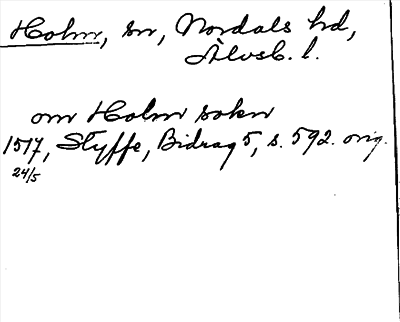 Holm, sn, Nordals hd,
Älvsb. l.
om Holm sokn
1517, Styffe, Bidrag 5, s. 592. orig.
24/5